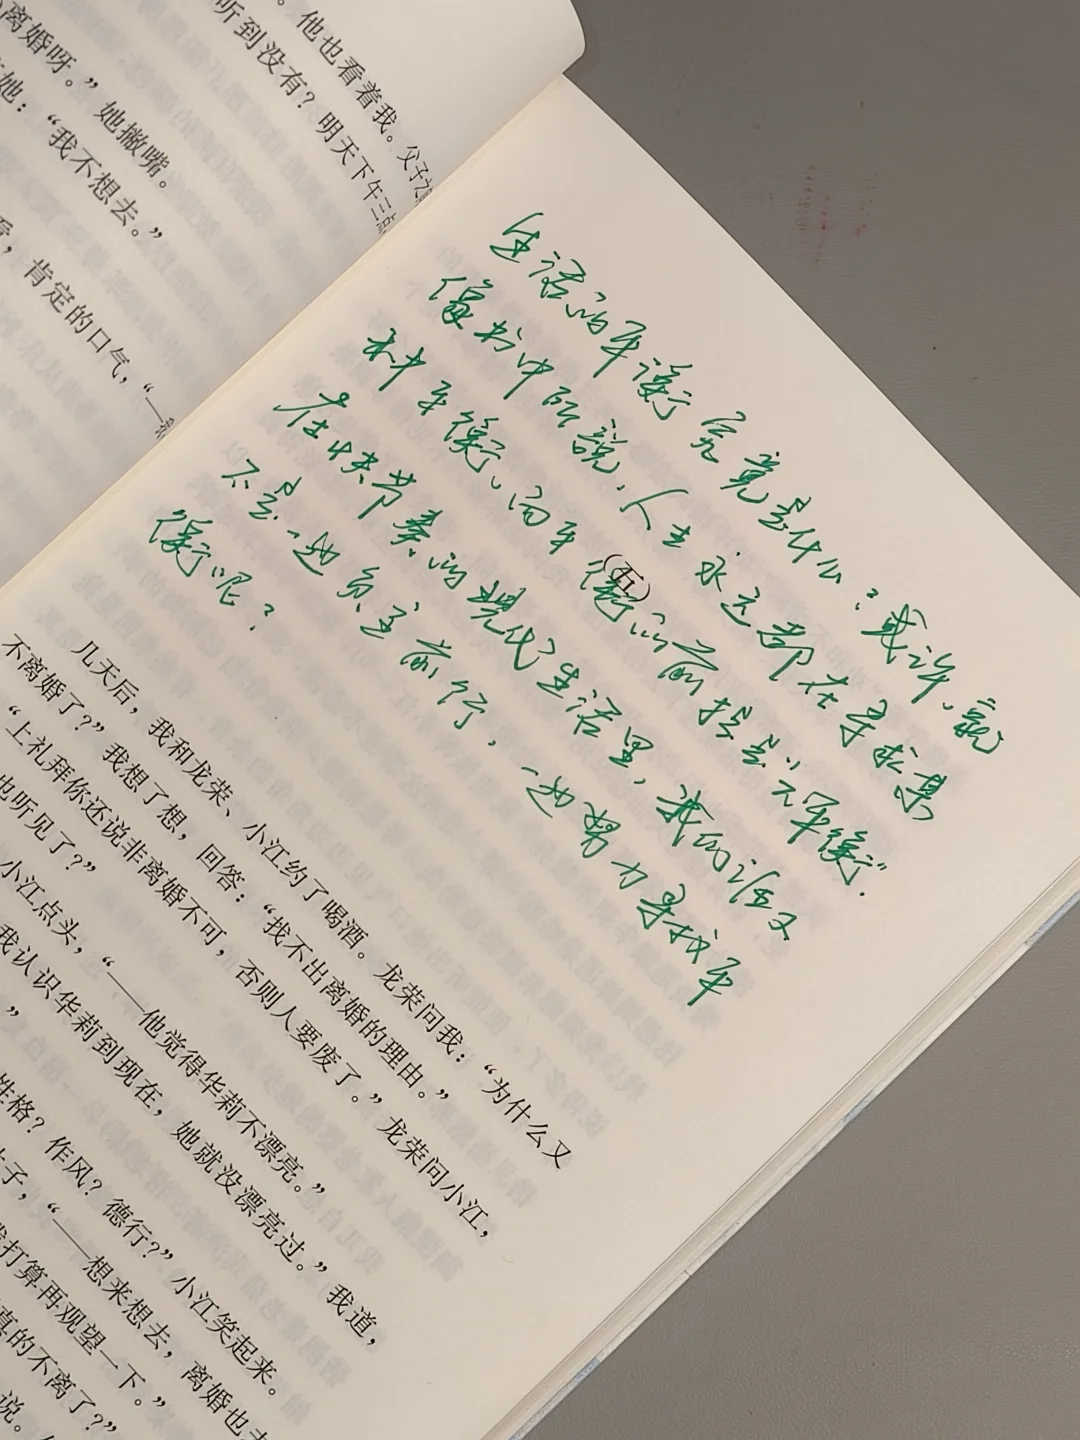 。他也看着我。父子
听到没有？明天下午三点
离婚呀。”她撇嘴。
她：“我不想去。”
看，肯定的口气，“—我
生活的平衡究竟是什么？或许，就
像书中所說，人生永远都在寻求某
种平衡，而平衡的前提是“不平衡”.
在快节奏的现代生活里，我们谁又
不是一边负重前行，一边努力寻找平
衡呢？
（五）
几天后，我和龙荣、小江约了喝酒。龙荣问我：“为什么又
不离婚了？”我想了想，回答：“找不出离婚的理由。”
“上礼拜你还说非离婚不可，否则人要废了。”龙荣问小江，
也听见了？”
小江点头，“——他觉得华莉不漂亮。”
我认识华莉到现在，她就没漂亮过。”我道，
”
性格？作风？德行？”小江笑起来。
子，“——想来想去，离婚也
打算再观望一下。”
真的不离了？”
说。